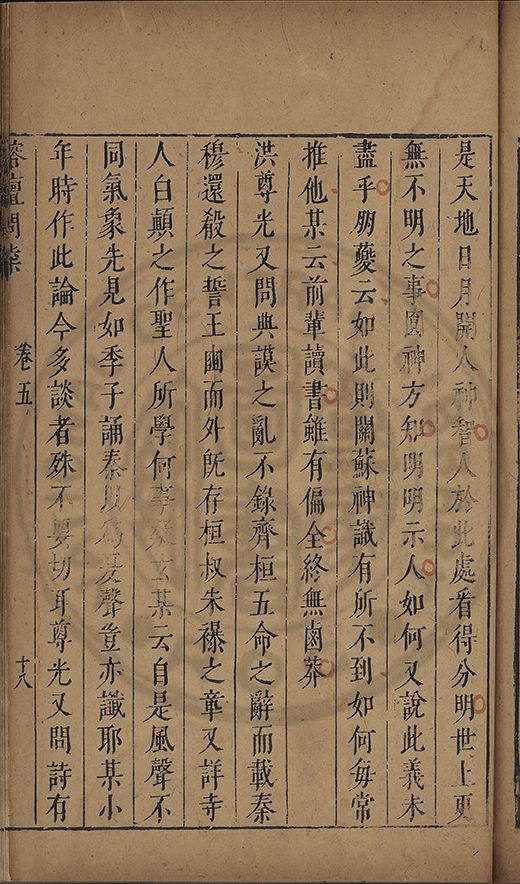 是天地日月開人神智人於此處看得分明世上更
無不明之事圓神方知明明示人如何又說此義未
盡乎朋夔云如此則關蘇神識有所不到如何每常
推他某云前輩讀書雖有偏全終無鹵莽
洪尊光又問典謨之亂不錄齊桓五命之辭而載秦
穆還殽之誓王豳而外既存桓叔朱襮之章又詳寺
人白顛之作聖人所學何事疑玄某云自是風聲不
同氣象先見如季子誦秦風為夏聲豈亦讖耶某小
年時作此論今多談者殊不要切耳尊光又問詩有
榕壇問業 卷五 十八